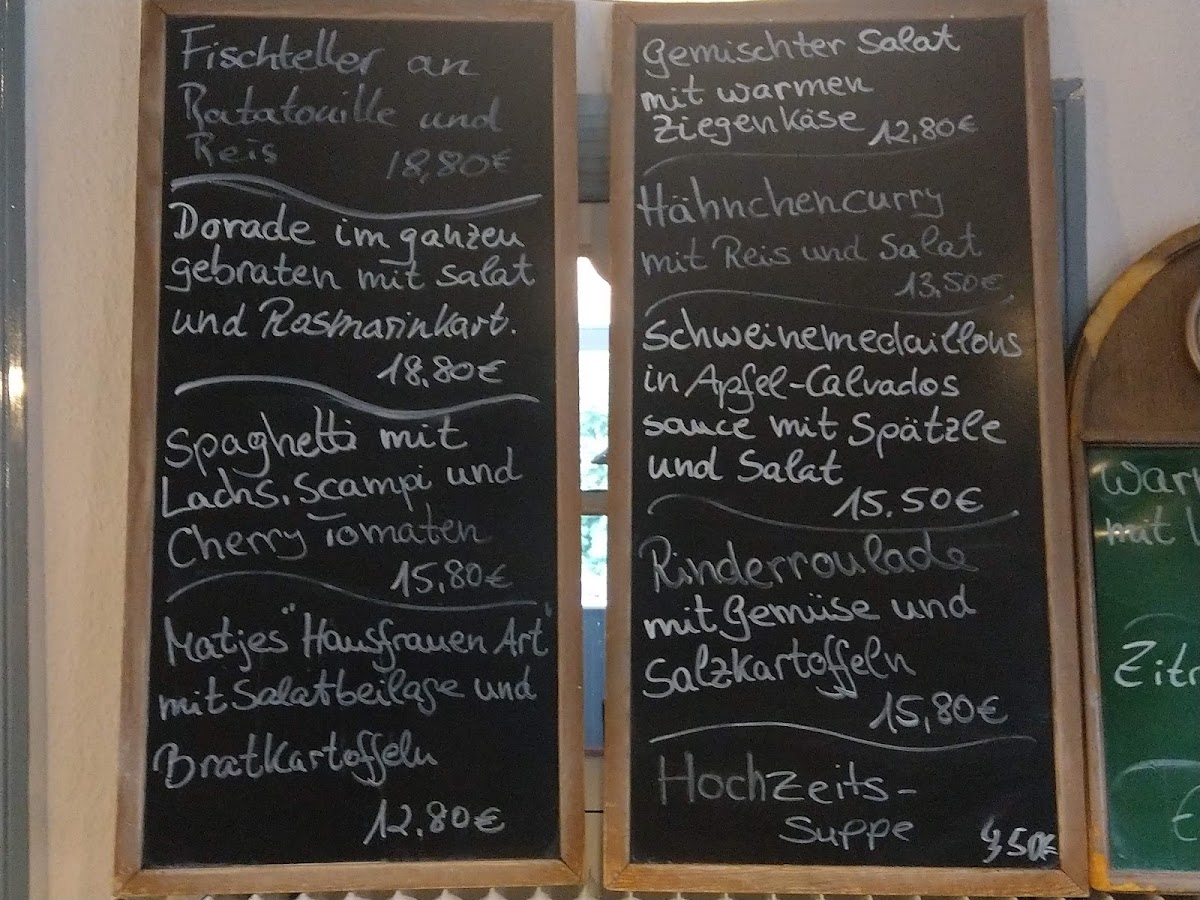 Fischteller an
Ratatouille und
Reis 18,80€
Dorade im ganzen
gebraten mit Salat
und Rosmarinkart.
18,80€
Spaghetti mit
Lachs, Scampi und
Cherry Tomaten
15,80€
Matjes "Hausfrauen Art"
mit Salatbeilage und
Bratkartoffeln
12,80€
Gemischter Salat
mit warmen
Ziegenkäse 12,80€
Hähnchencurry
mit Reis und Salat
13,50€
Schweinemedaillons
in Apfel-Calvados
sauce mit Spätzle
und Salat
15.50€
Rinderroulade
mit Gemüse und
Salzkartoffeln
15,80€
Hochzeits-
Suppe
mit
Zitr